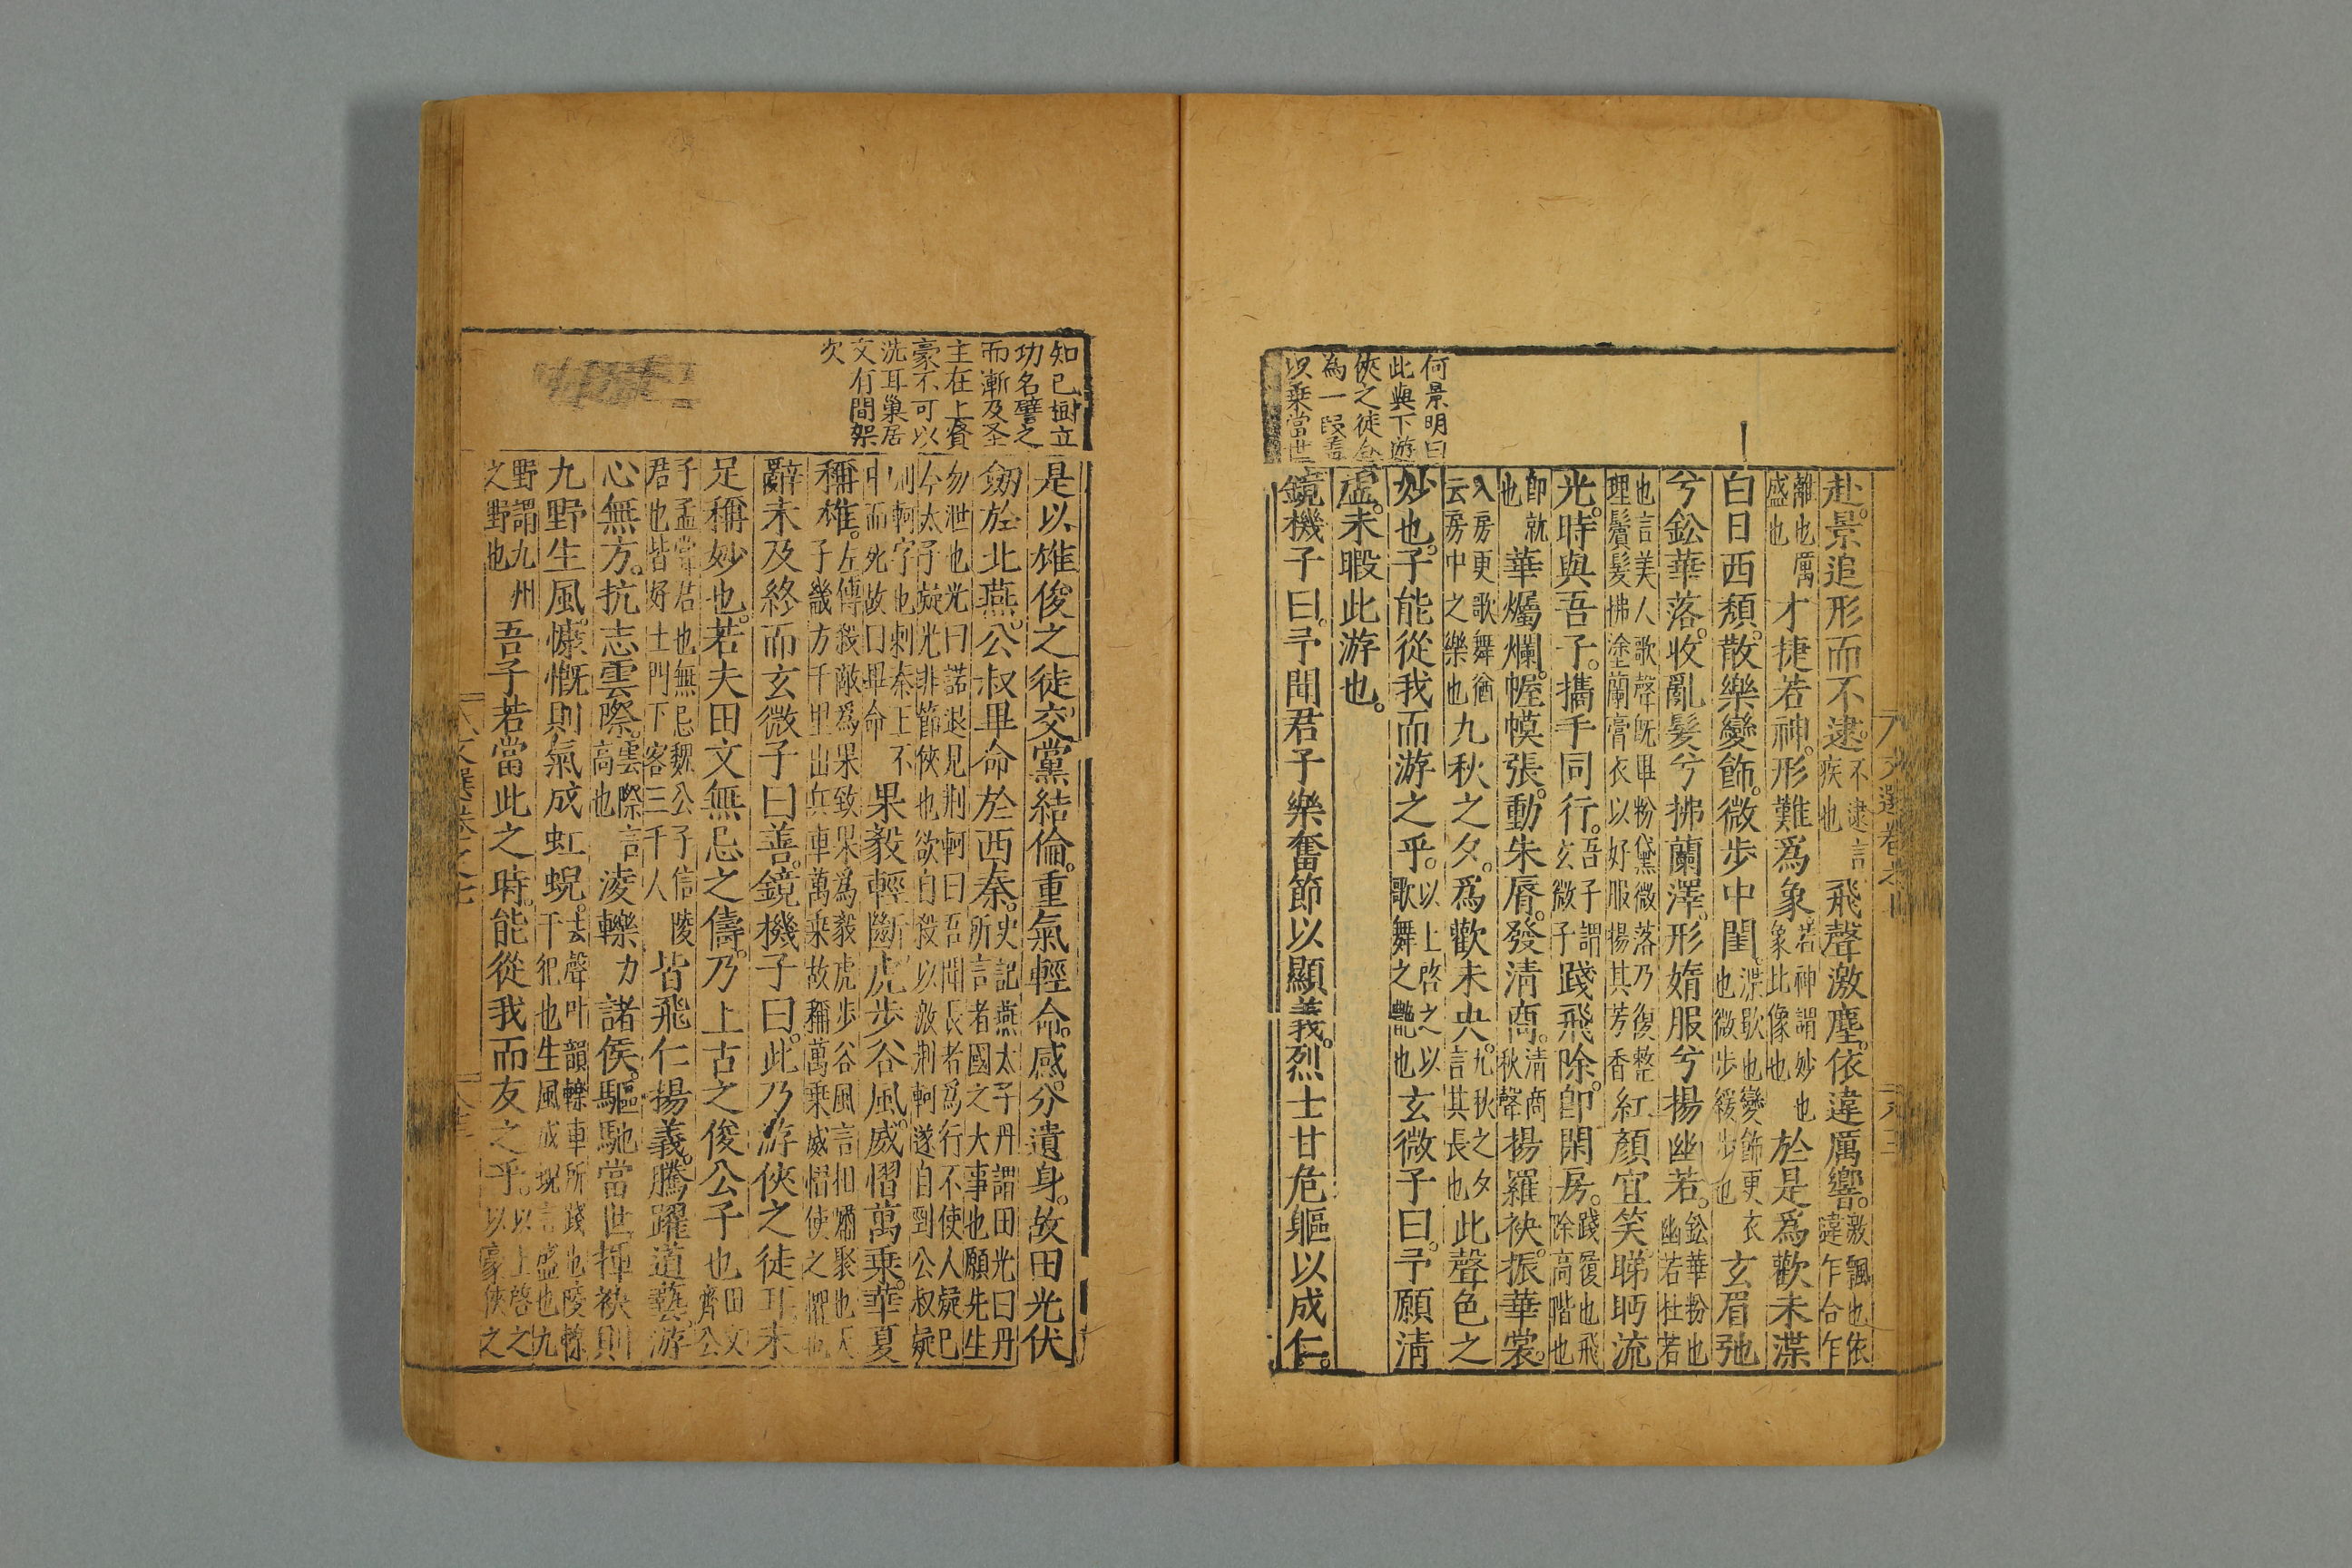 何景明曰
此與下遊
俠之徒合
為一段善
以乗當世
赴景追形而不逮。不逮言疾也飛聲激塵。依違厲響。激飄也依違乍合乍
離也厲盛也才捷若神。形難爲象。若神謂妙也象此像也於是爲歡未渫
白日西頹。散樂變飾。微步中閨。渫歇也變飾更衣也微步緩步也玄眉弛
兮鈆華落。收亂髮兮拂蘭澤。形媠服兮揚幽若。鈆華粉也幽若杜若
也言美人歌聲既畢粉黛微落乃復整理鬢髮拂塗蘭膏衣以好服揚其芳香紅顏宜笑。睇眄流
光。時與吾子。攜手同行。吾子謂玄微子踐飛除。卽閑房。踐履也飛除高階也
卽就也華爥爛。幄幙張。動朱脣。發清商。清商秋聲揚羅袂。振華裳。
入房更歌舞猶云房中之樂也九秋之夕。爲歡未央。九秋之夕言其長也此聲色之
妙也。子能從我而游之乎。以上啓之以歌舞之艷也玄微子曰。予願清
虛。未暇此游也。
鏡機子曰。予聞君子樂奮節以顯義。烈士甘危軀以成仁。
知已樹立
功名譬之
而漸及圣
主在上賓
豪不可以
洗耳巢居
文有間架
次
是以雄俊之徒。交黨結倫。重氣輕命。感分遺身。故田光伏
劒於北燕。公叔畢命於西秦。史記燕太子丹謂田光曰丹所言者國之大事也願先生
勿泄也光曰諾退見荆軻曰吾聞長者爲行不使人疑已今太子疑光非節俠也欲自殺以激荆軻遂自剄公叔疑
則軻字也刺秦王不中而死故曰畢命果毅輕斷。虎步谷風。威慴萬乗。華夏
稱雄。左傳殺敵爲果致果爲毅虎步谷風言扣嘯聚也天子畿方千里出兵車萬乗故稱萬乗威慴使之懼也
辭未及終而玄微子曰善。鏡機子曰。此乃游俠之徒耳未
足稱妙也。若夫田文無忌之儔。乃上古之俊公子也田文齊公
子孟嘗君也無忌魏公子信陵君也皆好士門下客三千人皆飛仁揚義。騰躍道藝。游
心無方。抗志雲際。雲際言高也淩轢力諸侯。驅馳當世揮袂則
九野生風。慷慨則氣成虹蜺。去聲叶韻轢車所踐也陵轢干犯也生風成蜺言盛也九
野謂九州之野也吾子若當此之時。能從我而友之乎。以上啓之以豪俠之